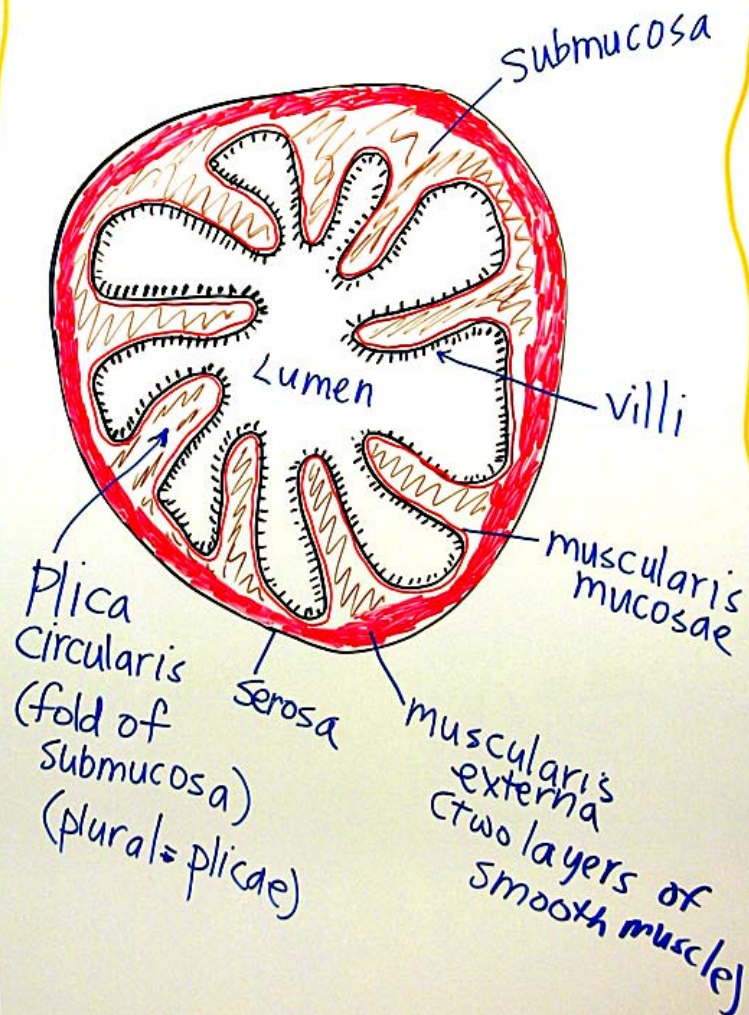 submucosa
Lumen
villi
muscularis
mucosae
plica
circularis
(fold of
submucosa)
(plural=plicae)
serosa
muscularis
externa
(two layers of
smooth muscle)